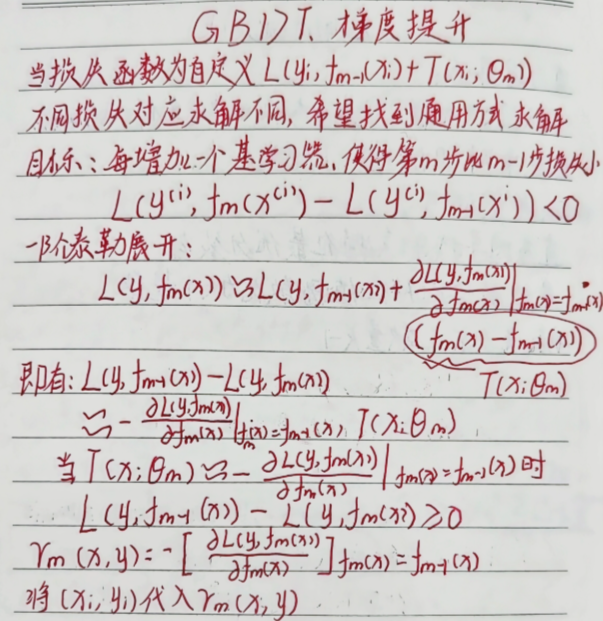 GBDT、梯度提升
当损失函数为自定义 L(yi, fm-1(xi)+T(xi; Θm))
不同损失对应求解不同, 希望找到通用方式求解
目标: 每增加一个基学习器, 使得第m步比m-1步损失小
L(y⁽ⁱ⁾, fm(x⁽ⁱ⁾) - L(y⁽ⁱ⁾, fm-1(xⁱ)) < 0
一阶泰勒展开:
L(y, fm(x)) ≈ L(y, fm-1(x)) + ∂L(y, fm(x))/∂fm(x) | fm(x)=fm-1(x)
(fm(x) - fm-1(x))
即有: L(y, fm-1(x)) - L(y, fm(x)) T(x; Θm)
≈ - ∂L(y, fm(x))/∂fm(x) | fm(x)=fm-1(x), T(x; Θm)
当 T(x; Θm) ≈ - ∂L(y, fm(x))/∂fm(x) | fm(x)=fm-1(x) 时
L(y, fm-1(x)) - L(y, fm(x)) ≥ 0
rm(x, y) = - [∂L(y, fm(x))/∂fm(x)] fm(x)=fm-1(x)
将 (xi, yi) 代入 rm(x, y)